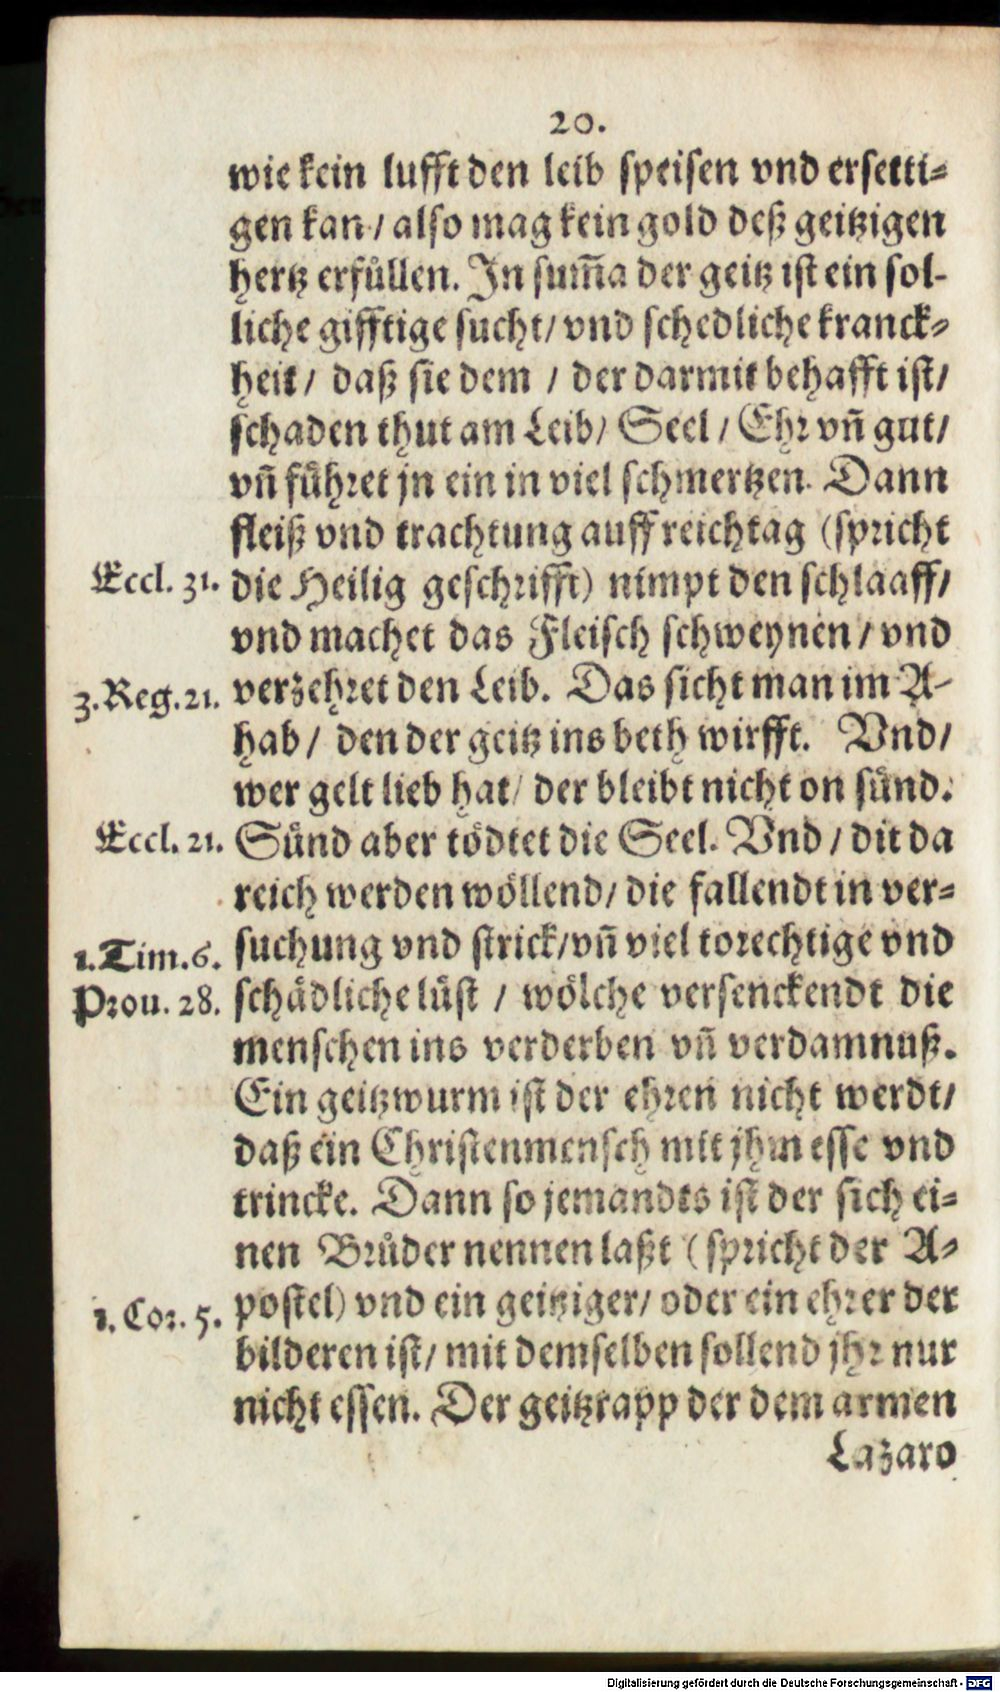 20.
wie kein lufft den leib speisen vnd ersetti-
gen kan / also mag kein gold deß geitzigen
hertz erfüllen. In sum̄a der geitz ist ein sol-
liche gifftige sucht / vnd schedliche kranck-
heit / daß sie dem / der darmit behafft ist /
schaden thut am Leib / Seel / Ehr vn̄ gut /
vn̄ führet jn ein in viel schmertzen. Dann
fleiß vnd trachtung auff reichtag (spricht
Eccl. 31. die Heilig geschrifft) nimpt den schlaaff /
vnd machet das Fleisch schweynen / vnd
3. Reg. 21. verzehret den Leib. Das sicht man im A-
hab / den der geitz ins beth wirfft. Vnd /
wer gelt lieb hat / der bleibt nicht on sünd.
Eccl. 21. Sünd aber tödtet die Seel. Vnd / dit da
reich werden wöllend / die fallendt in ver-
1. Tim. 6. suchung vnd strick / vn̄ viel torechtige vnd
Prou. 28. schädliche lüst / wölche versenckendt die
menschen ins verderben vn̄ verdamnuß.
Ein geitzwurm ist der ehren nicht werdt /
daß ein Christenmensch mit jhm esse vnd
trincke. Dann so jemandts ist der sich ei-
nen Brůder nennen laßt (spricht der A-
1. Cor. 5. postel) vnd ein geitziger / oder ein ehrer der
bilderen ist / mit demselben sollend jhr nur
nicht essen. Der geitzrapp der dem armen
Lazaro
Digitalisierung gefördert durch die Deutsche Forschungsgemeinschaft - DFG